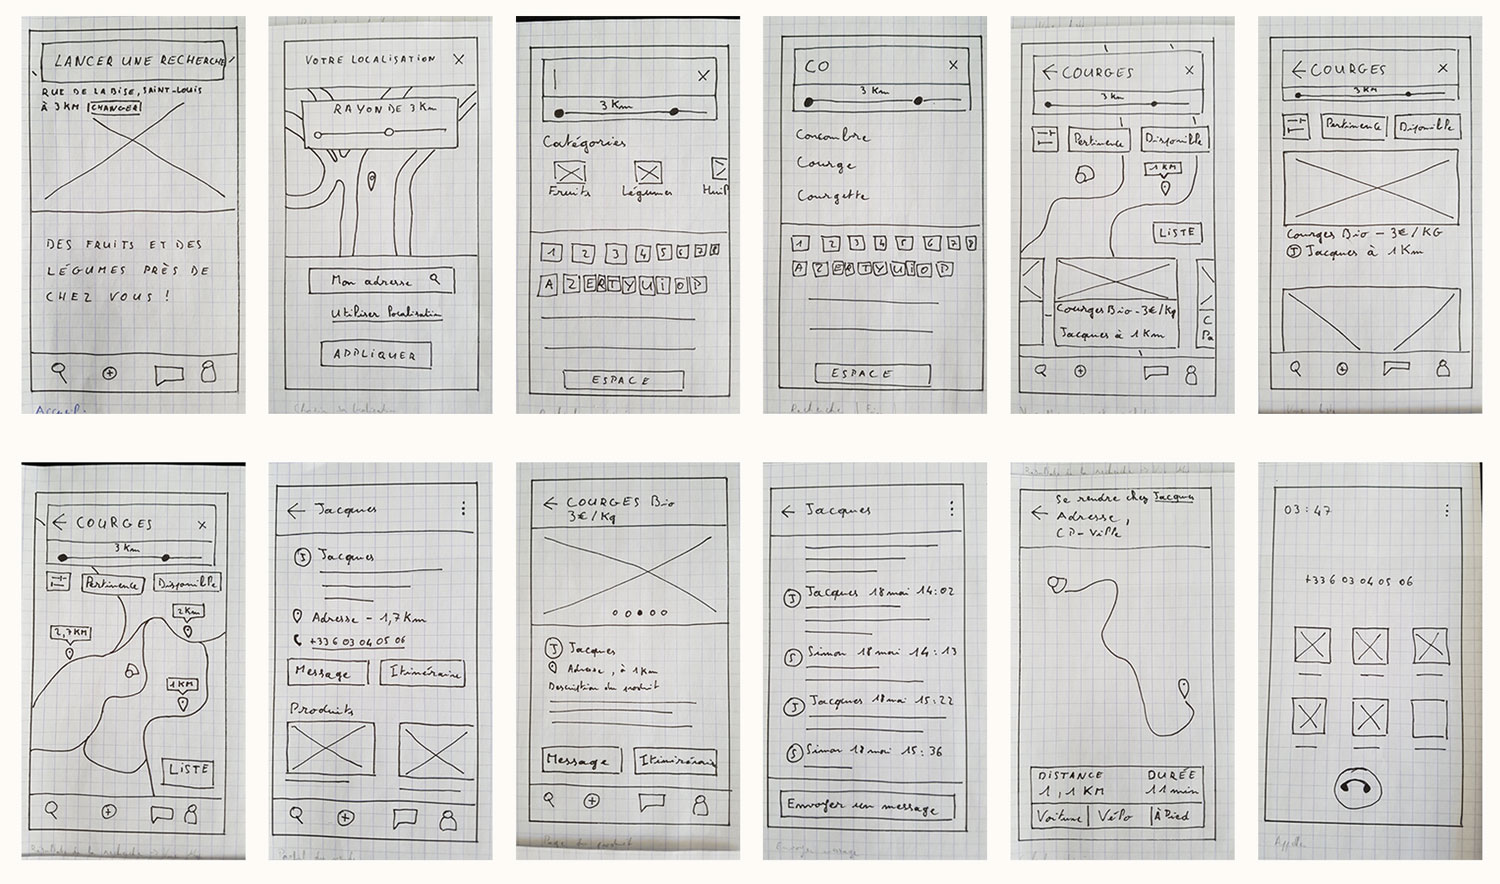 LANCER UNE RECHERCHE
RUE DE LA BISE, SAINT-LOUIS
À 3 KM CHANGER
DES FRUITS ET DES
LÉGUMES PRÈS DE
CHEZ VOUS !
Accueil
VOTRE LOCALISATION X
RAYON DE 3 Km
Mon adresse
Utiliser localisation
APPLIQUER
X
3 Km
Catégories
Fruits Légumes Huil
1 2 3 4 5 6 7 8
A Z E R T Y U I O P
ESPACE
CO X
3 Km
Concombre
Courge
Courgette
1 2 3 4 5 6 7 8
A Z E R T Y U I O P
ESPACE
← COURGES X
3 Km
Pertinence Disponible
1 KM
LISTE
Courges Bio - 3€/Kg
Jacques à 1 Km
C
Pa
← COURGES X
3 KM
Pertinence Disponible
Courges Bio - 3€/KG
J Jacques à 1 Km
← COURGES X
3 Km
Pertinence Disponible
2 Km
2,7 KM
1 KM
LISTE
← Jacques
J Jacques
Adresse - 1,7 Km
+33 6 03 04 05 06
Message Itinéraire
Produits
← COURGES Bio
3€/Kg
J Jacques
Adresse, à 1 Km
Description du produit
Message Itinéraire
← Jacques
J Jacques 18 mai 14:02
S Simon 18 mai 14:13
J Jacques 18 mai 15:22
S Simon 18 mai 15:36
Envoyer un message
Se rendre chez Jacques
← Adresse,
CP - Ville
DISTANCE DURÉE
1,1 KM 11 min
Voiture Vélo À Pied
03:47
+33 6 03 04 05 06